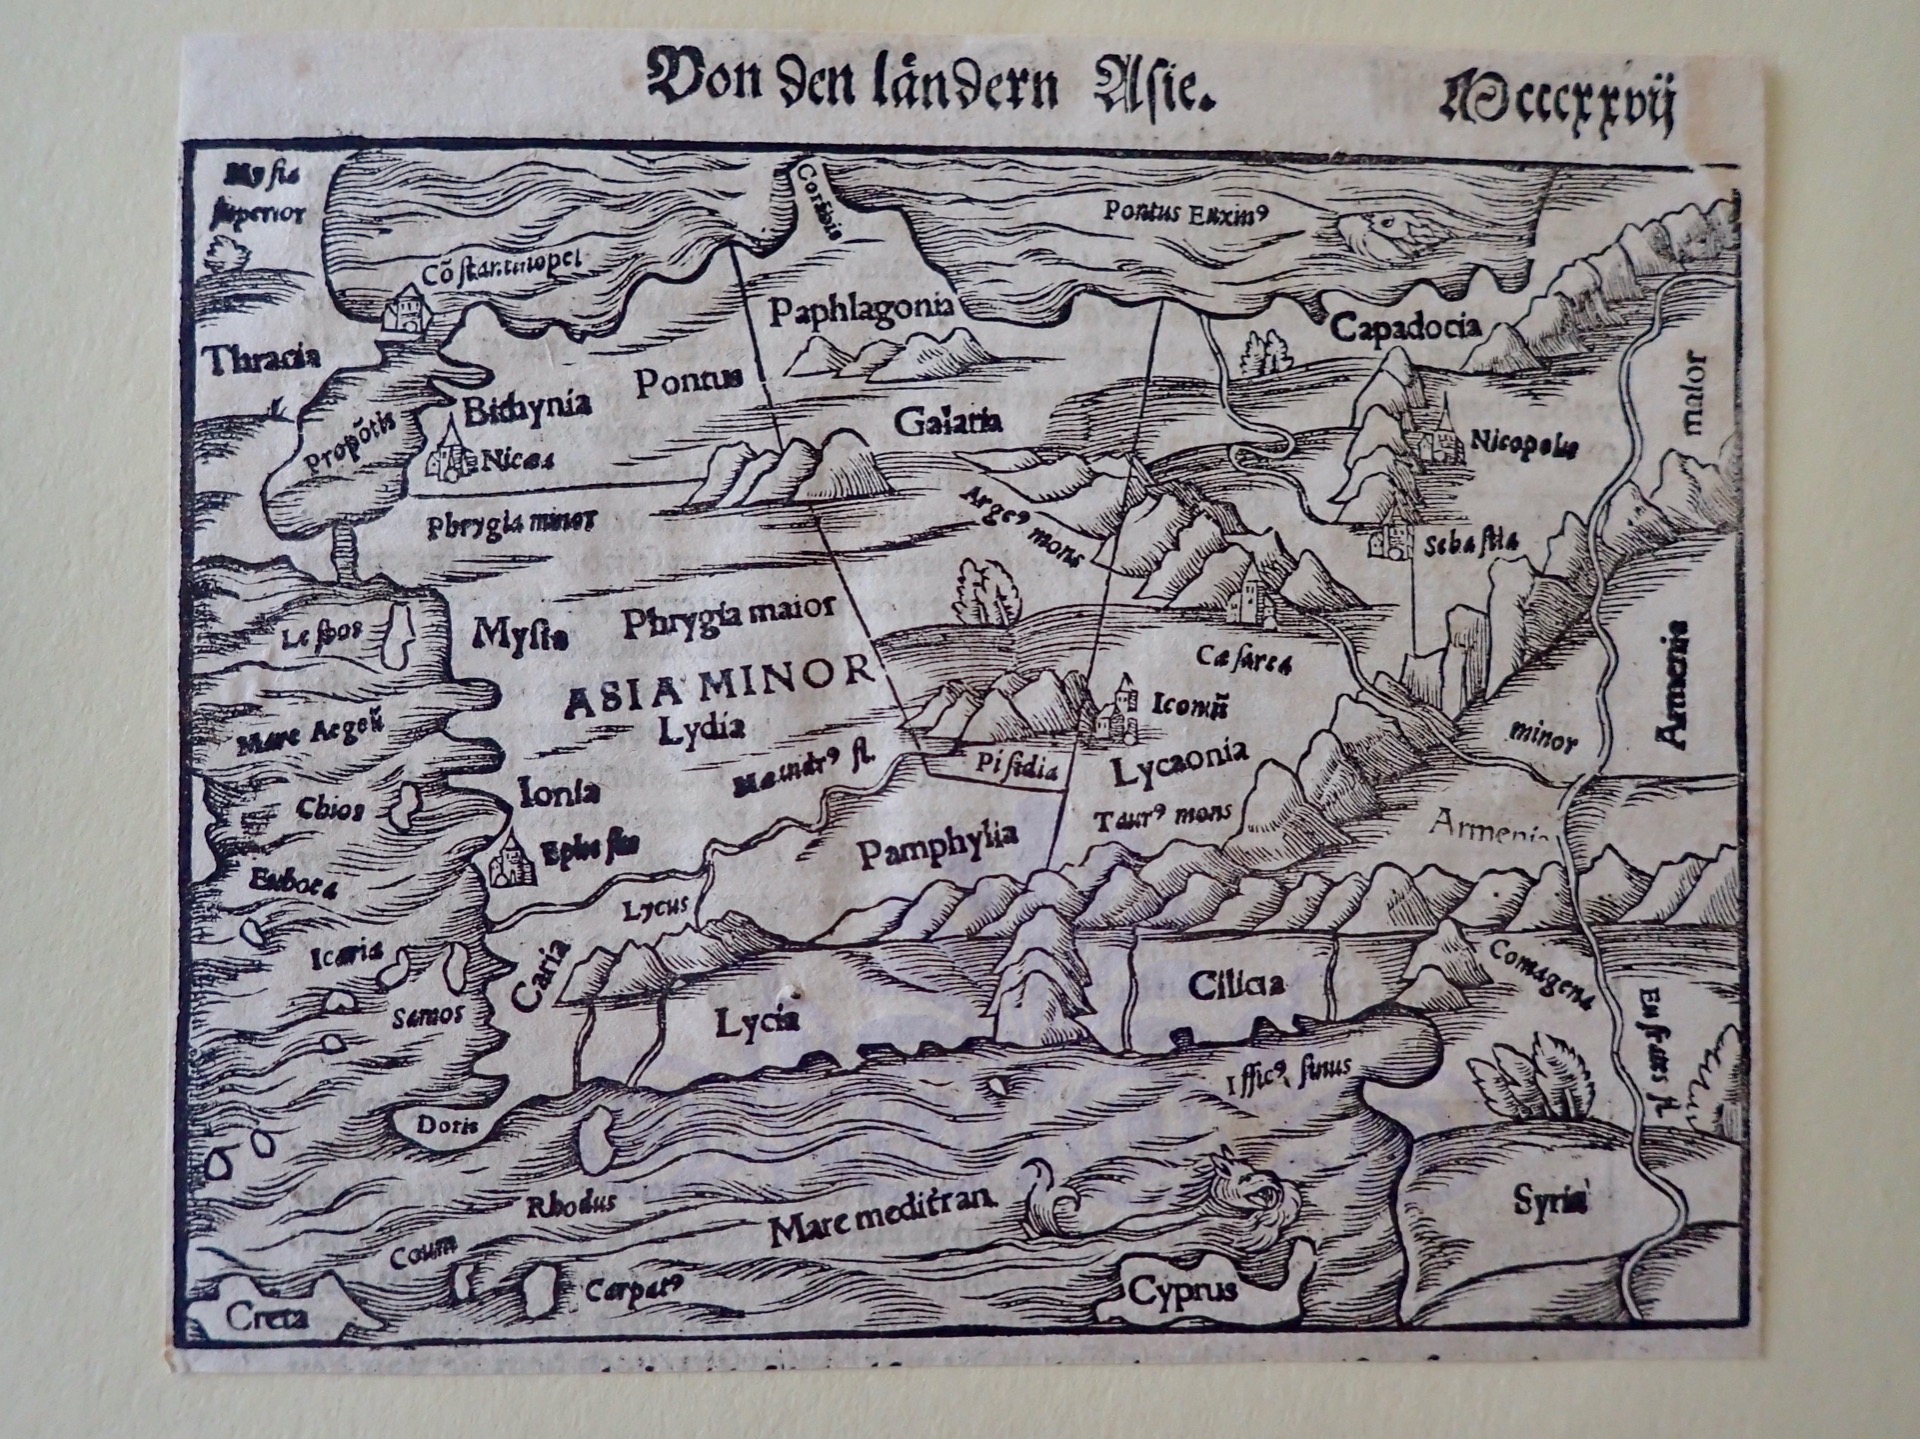 Von den ländern Asie.
Mcccxxvij
Mysia
superior
Corābis
Pontus Euxinꝰ
Cōstantinopel
Paphlagonia
Capadocia
Thracia
Pontus
maior
Bithynia
Galatia
Propōtis
Nicea
Nicopolis
Phrygia minor
Argeꝰ mons
Sebastia
Lesbos
Mysia
Phrygia maior
Armenia
Cæsarea
ASIA MINOR
Iconiū
Mare Aegeū
Lydia
minor
Pisidia
Lycaonia
Mæandrꝰ fl.
Chios
Ionia
Taurꝰ mons
Armenia
Ephesus
Pamphylia
Euboea
Lycus
Icaria
Caria
Comagena
Cilicia
Samos
Lycia
Eufrates fl.
Issicꝰ sinus
Doris
Rhodus
Mare meditran.
Syria
Coum
Carpatꝰ
Cyprus
Creta